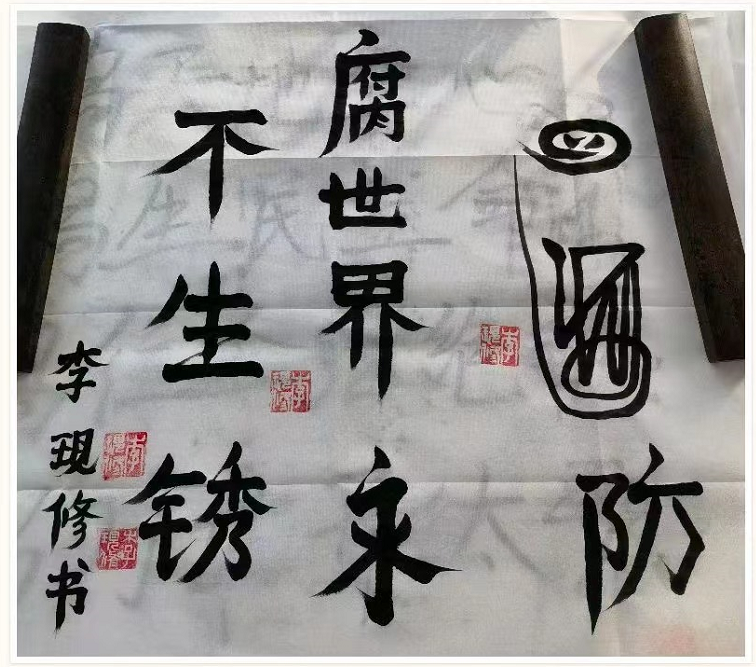 防
腐世界永
不生锈
李现修书